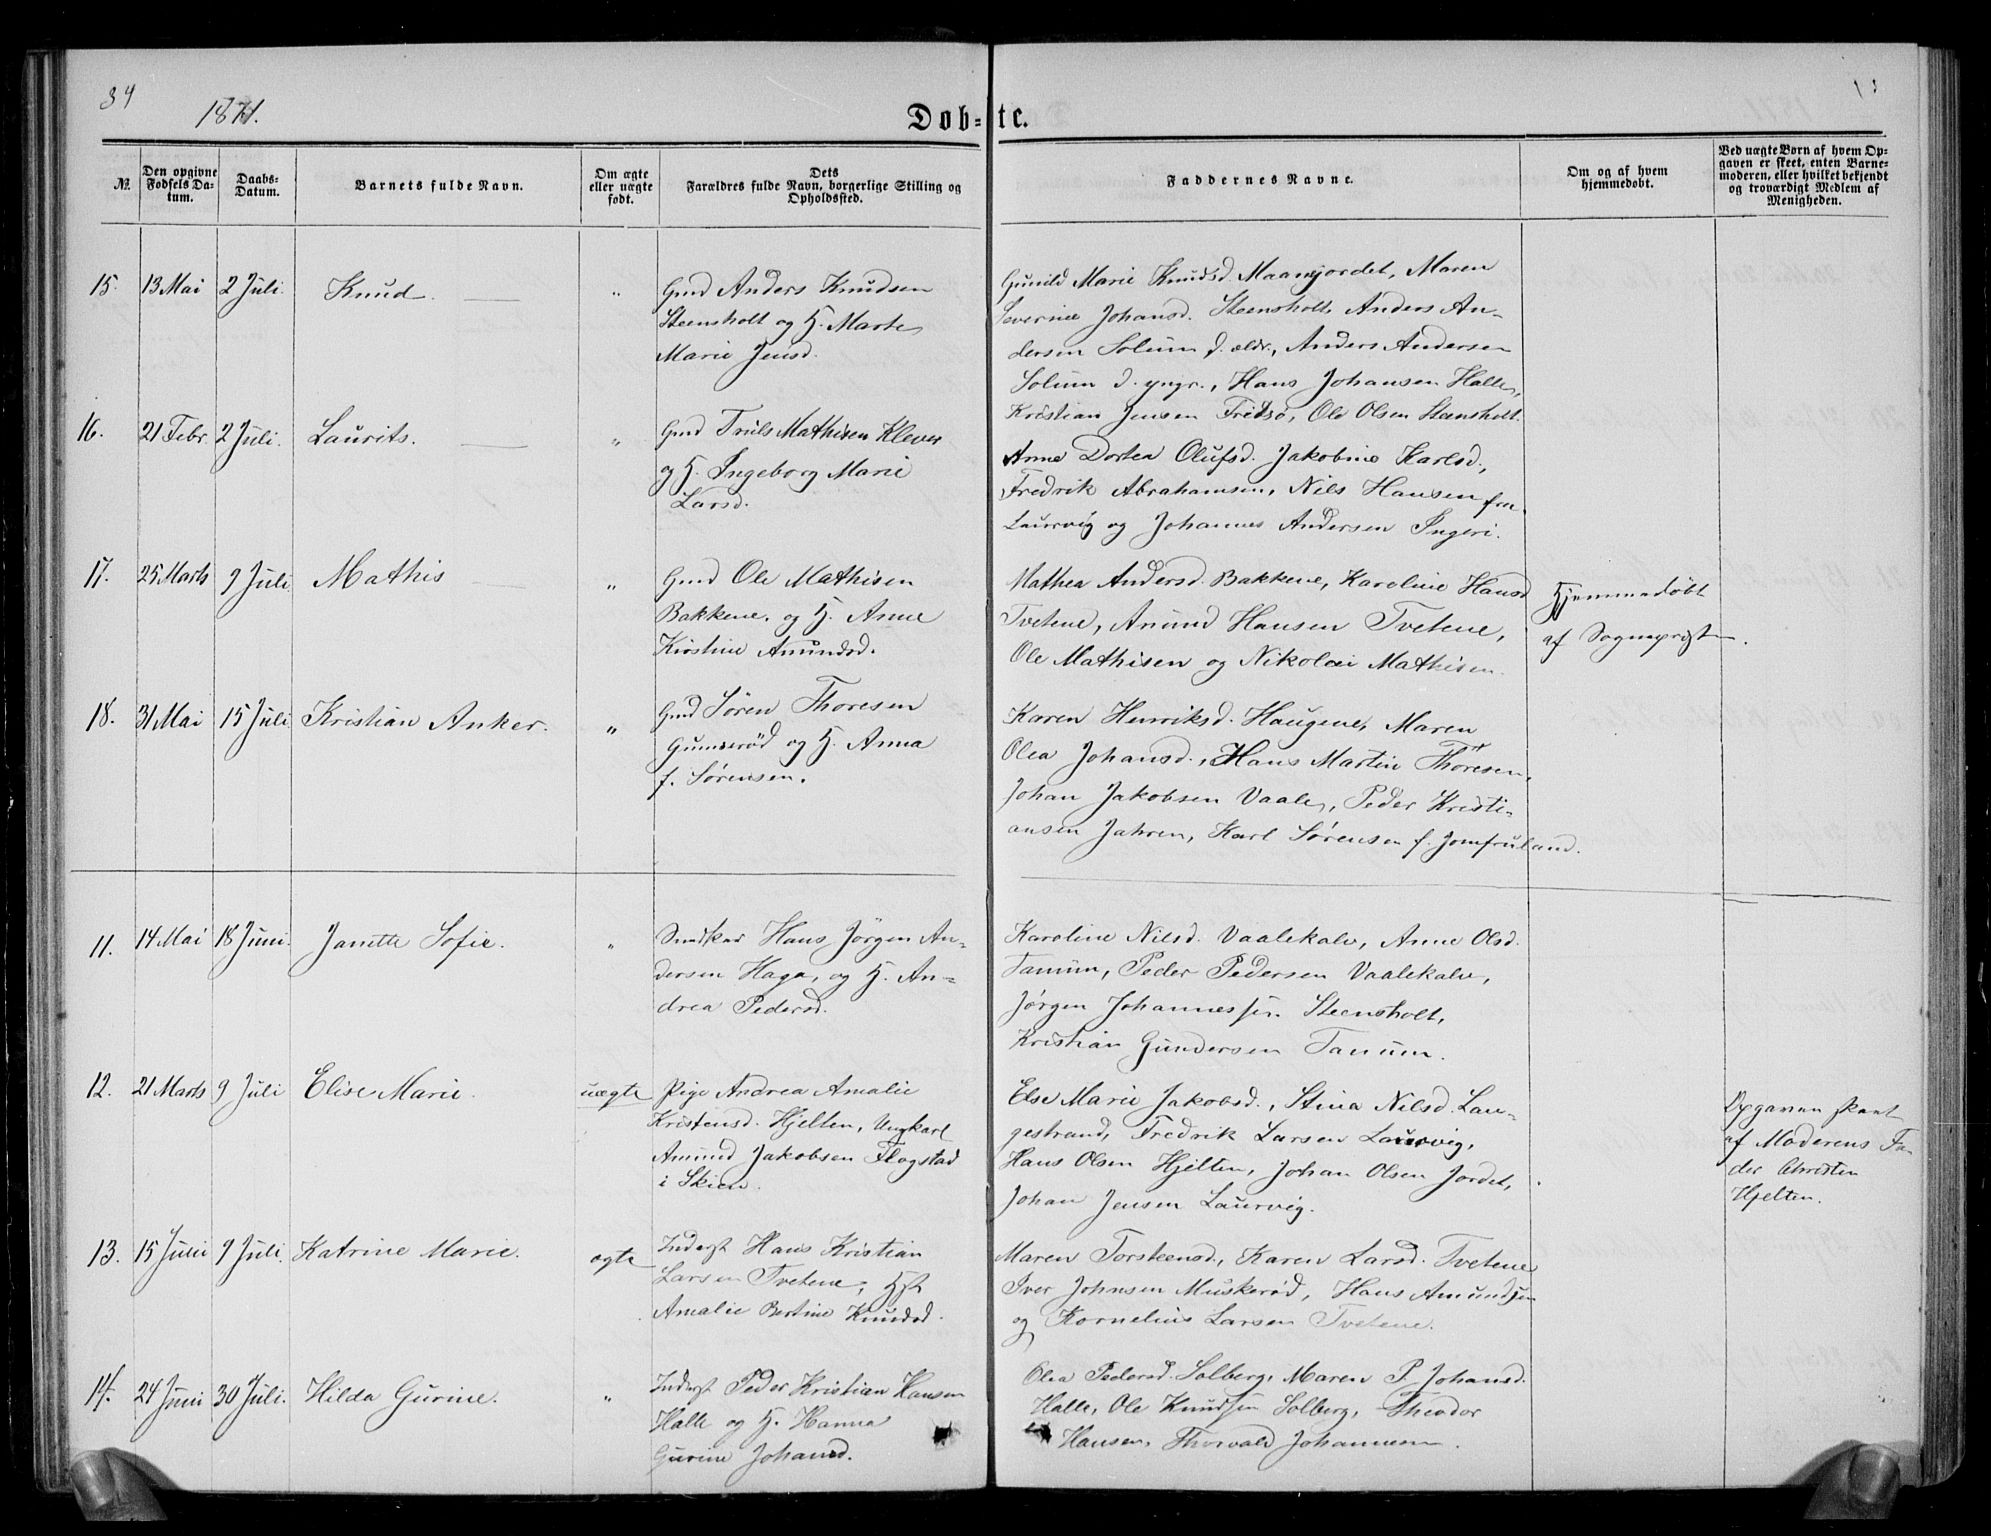 34
1871.
Døb-te.
№.
Den opgivne Fødsels Datum.
Daabs-Datum.
Barnets fulde Navn.
Om ægte eller uægte født.
Dets Forældres fulde Navn, borgerlige Stilling og Opholdssted.
Faddernes Navne.
Om og af hvem hjemmedøbt.
Ved uægte Børn af hvem Opgaven er skeet, enten Barnemoderen, eller hvilket bekjendt og troværdigt Medlem af Menigheden.
15. 13 Mai 2 Juli. Knud. "
Gmd Anders Knudsen
Steensholt og H. Marte
Marie Jensd.
Gunild Marie Knudsd. Maanejordet, Maren
Severine Johansd. Steensholt, Anders An-
dersen Solum d. ældr., Anders Andersen
Solum d. yngr., Hans Johansen Halle,
Kristian Jensen Fritsø, Ole Olsen Steensholt.
16. 21 Febr. 2 Juli. Laurits. "
Gmd Truls Mathisen Klever
og H. Ingeborg Marie
Larsd.
Anne Dortea Olufsd. Jakobine Karlsd.,
Fredrik Abrahamsen, Nils Hansen fra
Laurvig og Johannes Andersen Ingeri.
17. 25 Marts 9 Juli Mathis "
Gmd Ole Mathisen
Bakkene. og H. Anne
Kirstine Amundsd.
Mathea Andersd. Bakkene, Karoline Hansd
Tvetene, Amund Hansen Tvetene,
Ole Mathisen og Nikolai Mathisen.
Hjemmedøbt
af Sognepresten.
18. 31 Mai 15 Juli Kristian Anker. "
Gmd Søren Thoresen
Gumserød og H. Anna
f. Sørensen.
Karen Henriksd. Haugene, Maren
Olea Johansd., Hans Martin Thoresen,
Johan Jakobsen Vaale, Peder Kristi-
ansen Jahren, Karl Sørensen f. Jomfruland.
11. 14 Mai 18 Juni. Janette Sofie. "
Snedker Hans Jørgen An-
dersen Haga, og H. An-
drea Pedersd.
Karoline Nilsd. Vaalekalv, Anne Olsd.
Tanum, Peder Pedersen Vaalekalv,
Jørgen Johannessen. Steensholt,
Kristian Gundersen Tanum.
12. 21 Marts 9 Juli Elise Marie. uægte
Pige Andrea Amalie
Kristensd. Hjelten, Ungkarl
Amund Jakobsen Flogstad
i Skien.
Else Marie Jakobsd., Stina Nilsd. Lan-
gestrand, Fredrik Larsen Laurvig,
Hans Olsen Hjelten, Johan Olsen Jordet,
Johan Jensen Laurvig.
Opgaven skeet
af Moderens Fa-
der Christen
Hjelten.
13. 15 Juni 9 Juli. Katrine Marie. ægte
Inderst Hans Kristian
Larsen Tvetene, Hst
Amalie Bertine Knudsd.
Maren Torstensd., Karen Larsd. Tvetene
Iver Johnsen Muskerød, Hans Amundsen
og Kornelius Larsen Tvetene.
14. 24 Juni 30 Juli. Hilda Gurine. "
Inderst Peder Kristian Hansen
Halle og H. Hanna
Gurine Johansd.
Olea Pedersd. Solberg, Maren P. Johansd.
Halle, Ole Knudsen Solberg, Theodor
Hansen, Thorvald Johannesen.